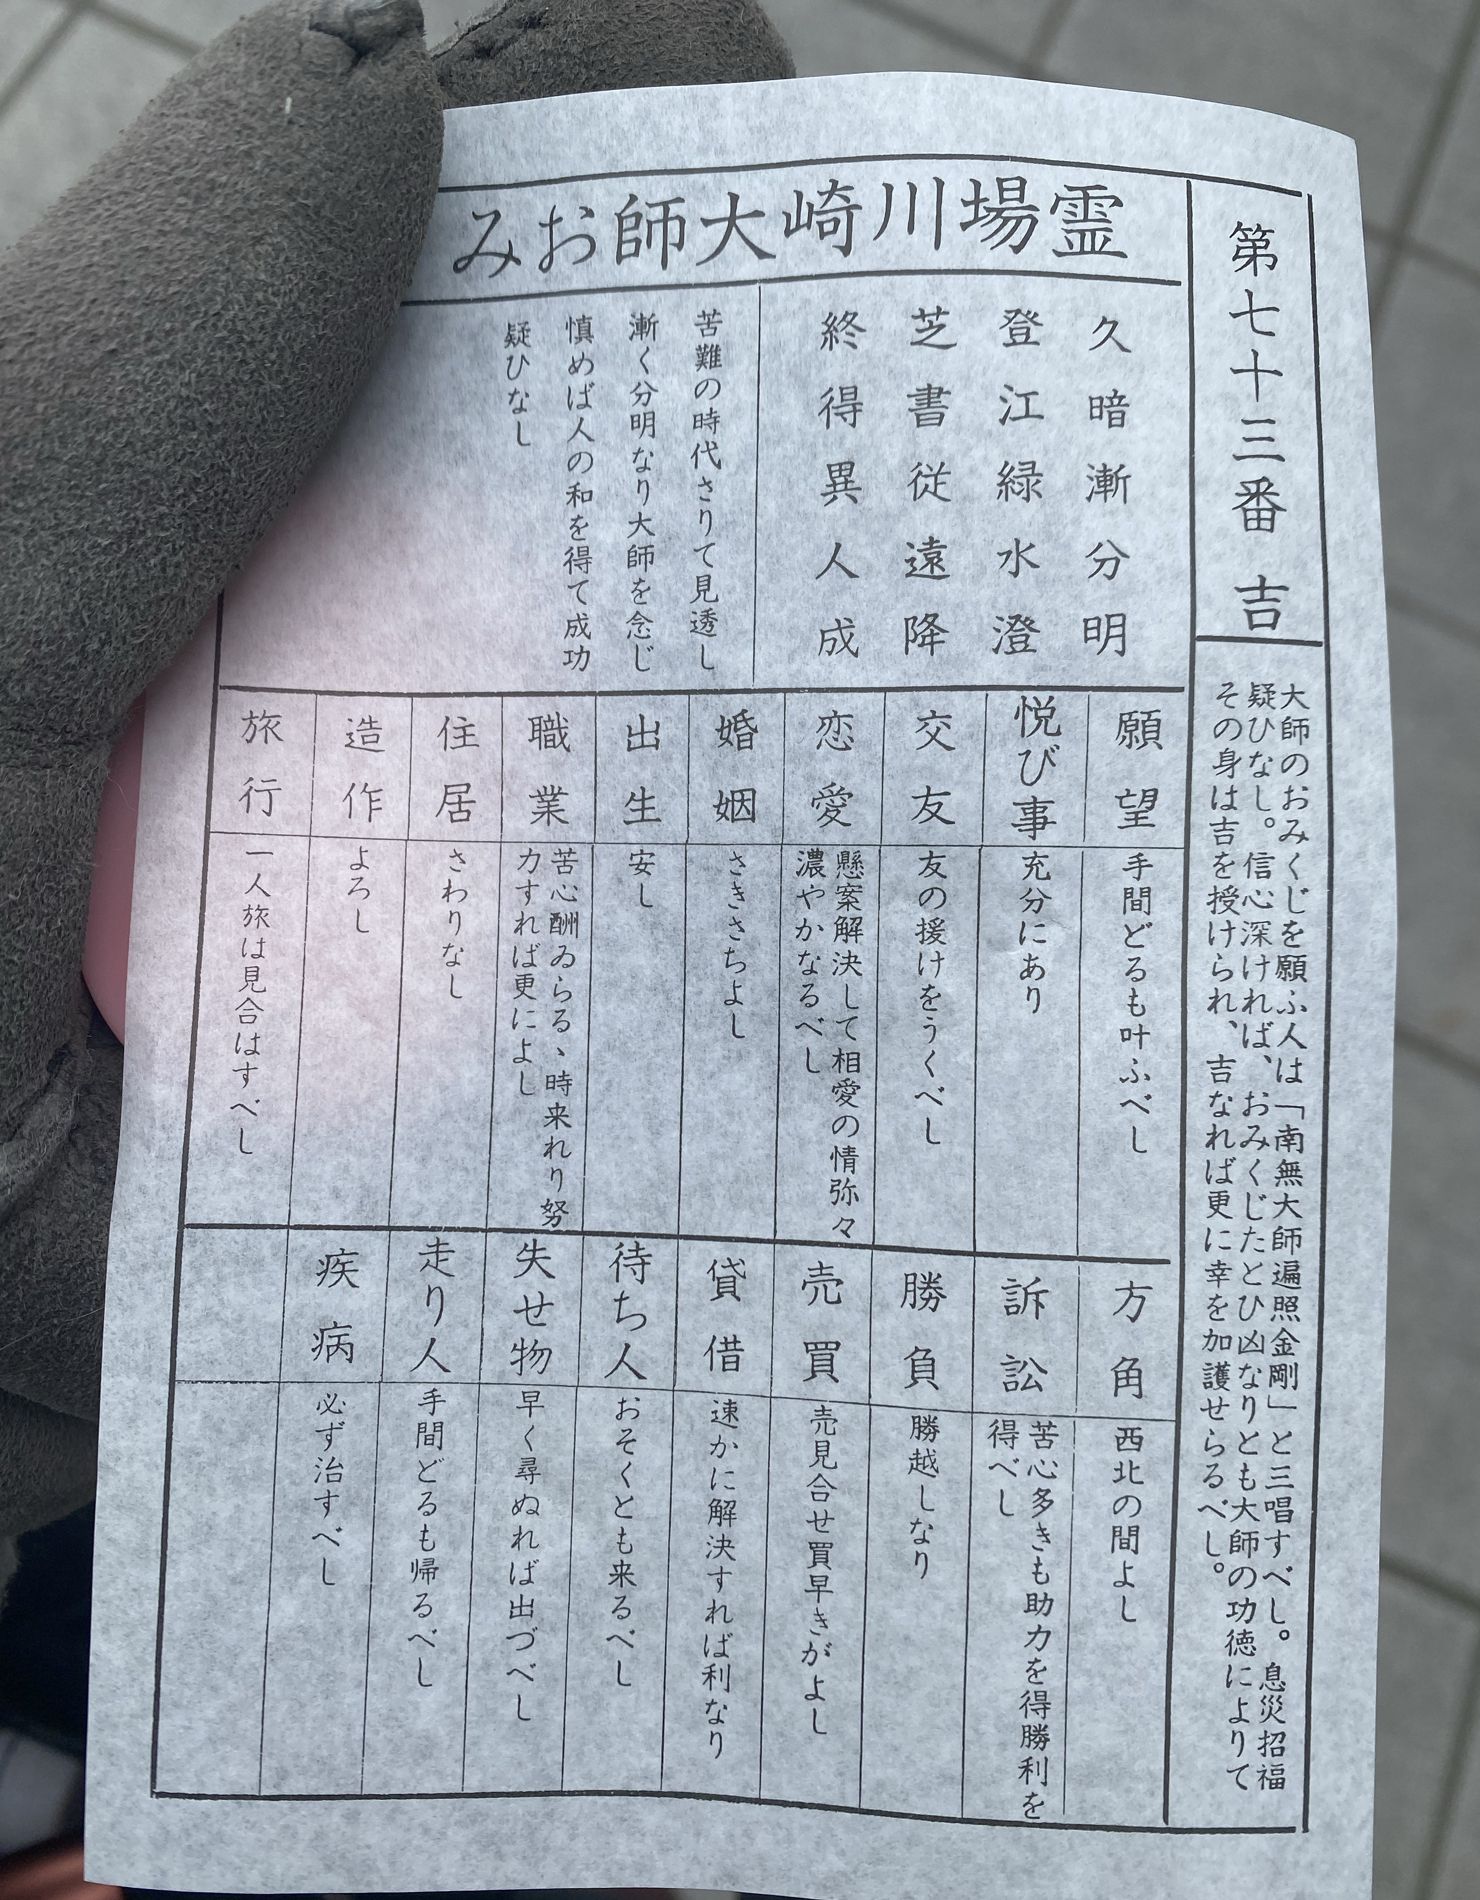 第七十三番 吉
大師のおみくじを願ふ人は「南無大師遍照金剛」と三唱すべし。息災招福
疑ひなし。信心深ければ、おみくじたとひ凶なりとも大師の功徳によりて
その身は吉を授けられ、吉なれば更に幸を加護せらるべし。
霊場川崎大師おみ
久暗漸分明
登江緑水澄
芝書従遠降
終得異人成
苦難の時代さりて見透し
漸く分明なり大師を念じ
慎めば人の和を得て成功
疑ひなし
願望
手間どるも叶ふべし
悦び事
充分にあり
交友
友の援けをうくべし
恋愛
懸案解決して相愛の情弥々
濃やかなるべし
婚姻
さきさちよし
出生
安し
職業
苦心酬ゐらるゝ時来れり努
力すれば更によし
住居
さわりなし
造作
よろし
旅行
一人旅は見合はすべし
方角
西北の間よし
訴訟
苦心多きも助力を得勝利を
得べし
勝負
勝越しなり
売買
売見合せ買早きがよし
貸借
速かに解決すれば利なり
待ち人
おそくとも来るべし
失せ物
早く尋ぬれば出づべし
走り人
手間どるも帰るべし
疾病
必ず治すべし